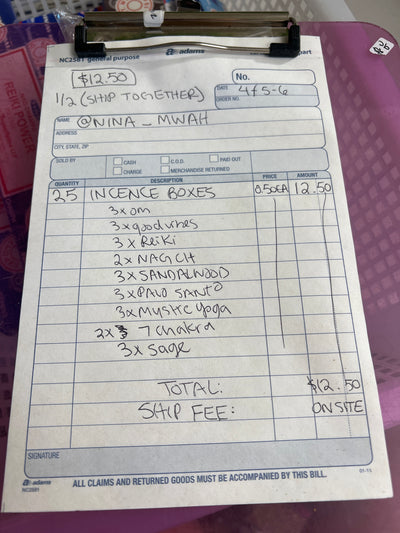 NC2581 general purpose
adams
part
$12.50
No.
1/2 (SHIP TOGETHER)
DATE 4/5-6
ORDER NO.
NAME @NINA_MWAH
ADDRESS
CITY, STATE, ZIP
SOLD BY CASH C.O.D. PAID OUT
CHARGE MERCHANDISE RETURNED
QUANTITY DESCRIPTION PRICE AMOUNT
25 INCENCE BOXES 0.50EA 12.50
3x om
3x good vibes
3x Reiki
2x NAG CH
3x SANDALWOOD
3x PALO SANTO
3x Mystic Yoga
2x 7 chakra
3x sage
TOTAL: $12.50
SHIP FEE: ONSITE
SIGNATURE
adams
NC2581
ALL CLAIMS AND RETURNED GOODS MUST BE ACCOMPANIED BY THIS BILL.
01-11
REIKI POWER